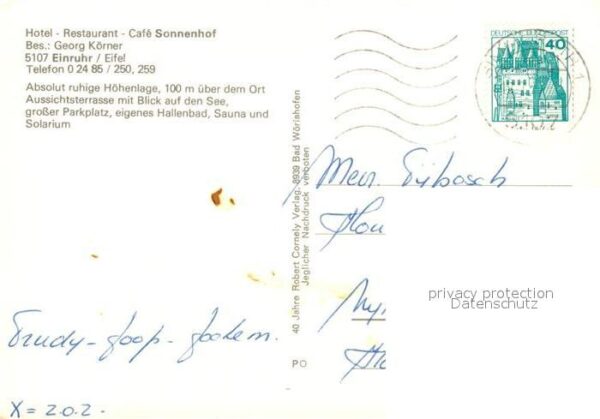 Hotel - Restaurant - Café Sonnenhof
Bes.: Georg Körner
5107 Einruhr / Eifel
Telefon 0 24 85 / 250, 259
Absolut ruhige Höhenlage, 100 m über dem Ort
Aussichtsterrasse mit Blick auf den See,
großer Parkplatz, eigenes Hallenbad, Sauna und
Solarium
Trudy-Joop-Jochem.
X = 202-
40 Jahre Robert Cornely Verlag, 8939 Bad Wörishofen
Jeglicher Nachdruck verboten
PO
DEUTSCHE BUNDESPOST
40
privacy protection
Datenschutz